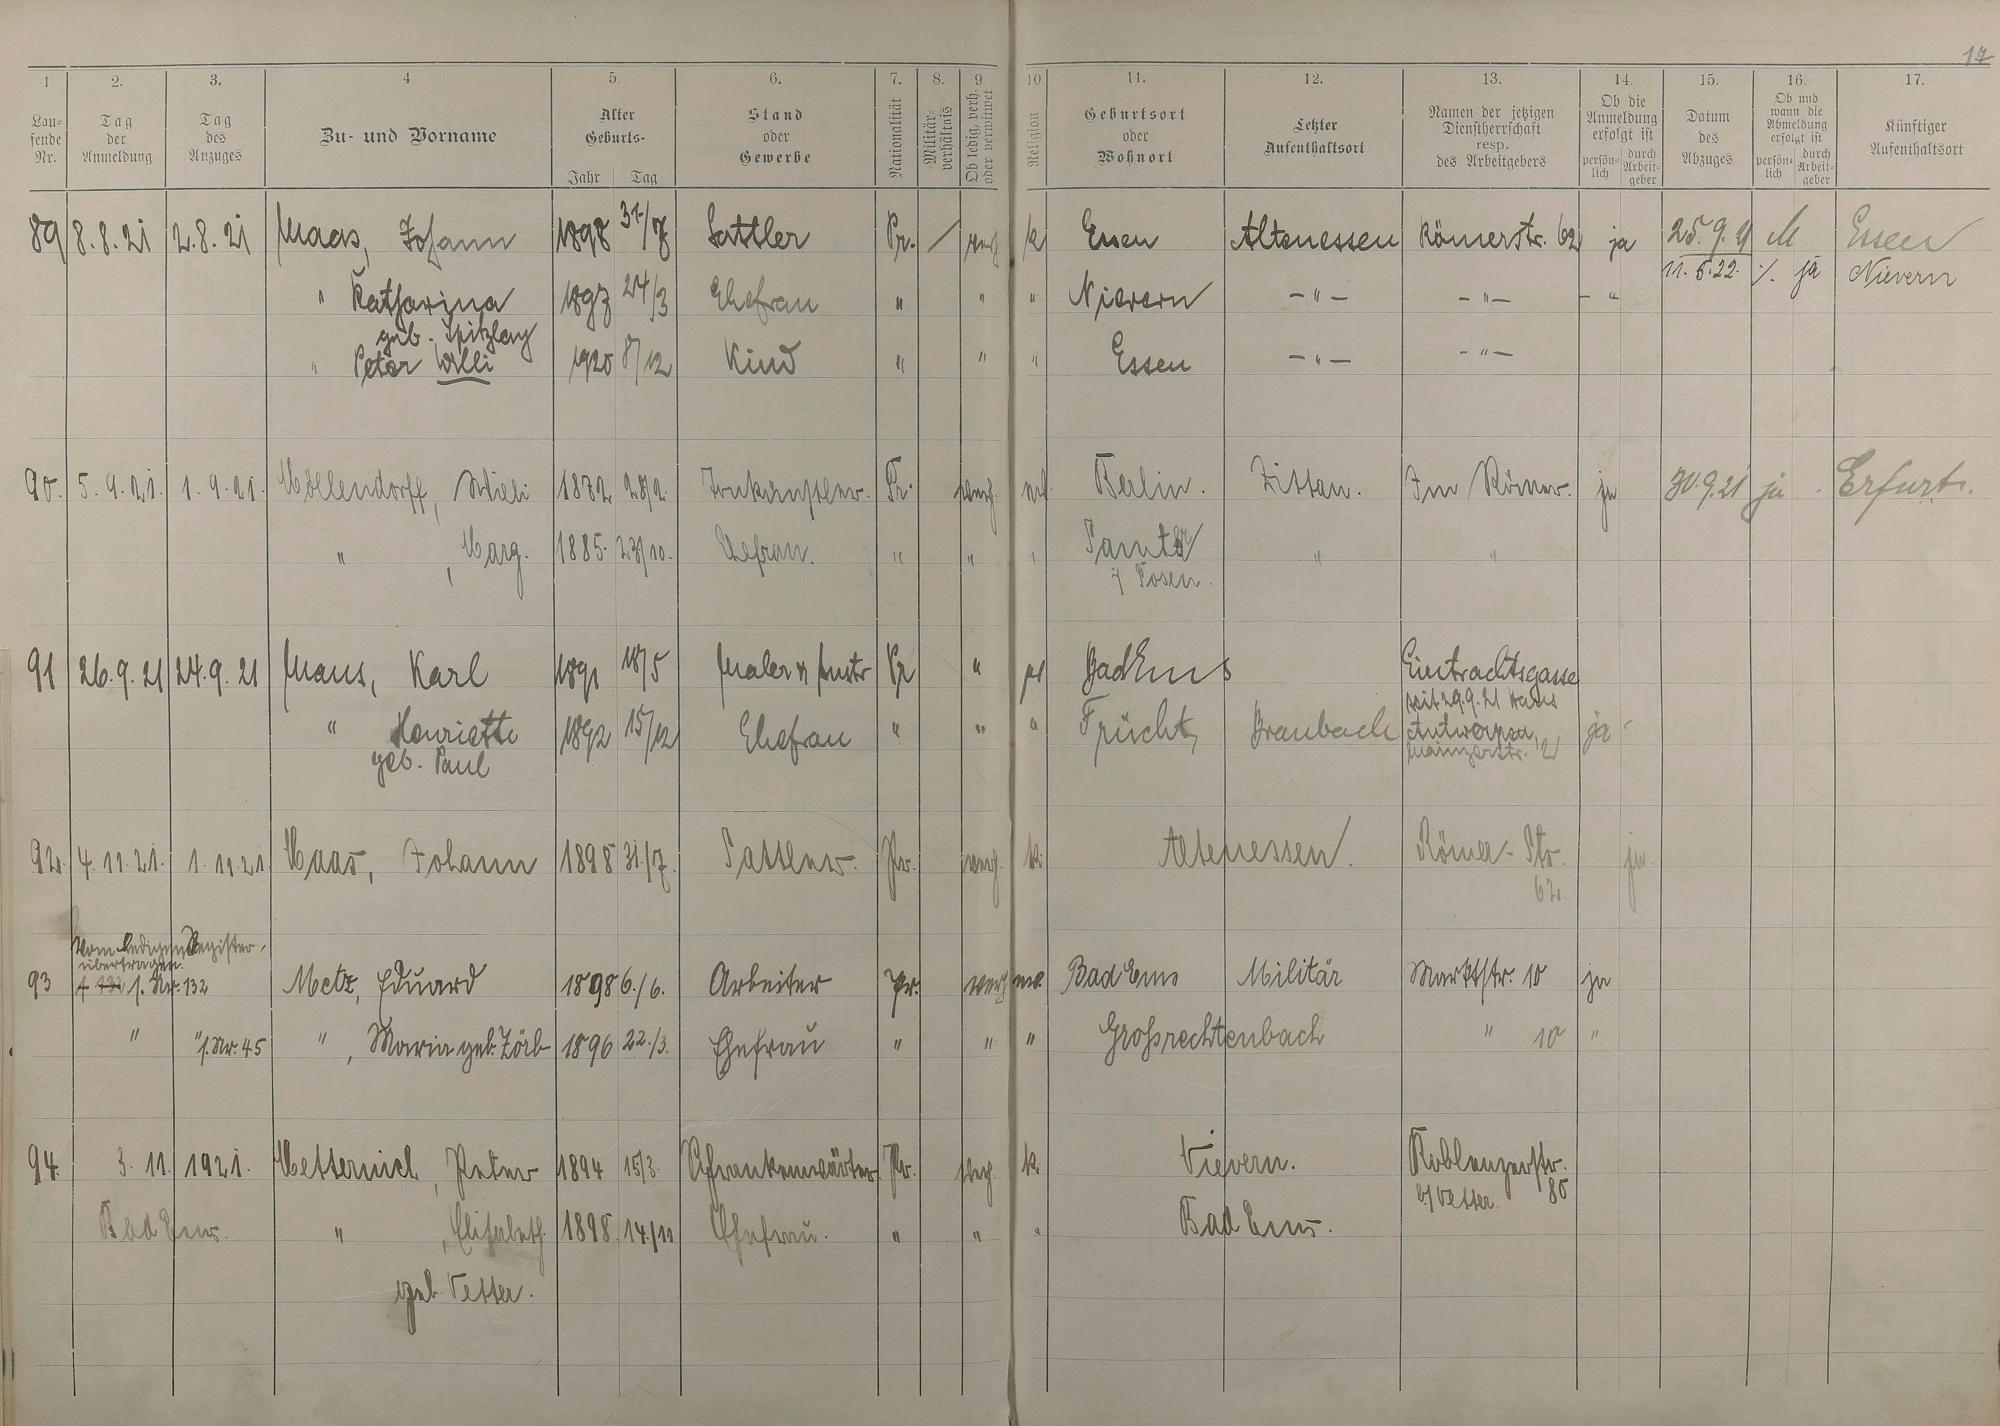 17
1 2. 3. 4 5. 6. 7. 8. 9. 10 11. 12. 13. 14. 15. 16. 17.
Laufende Nr. Tag der Anmeldung Tag des Anzuges Zu- und Vorname Alter Geburts- Jahr Tag Stand oder Gewerbe Nationalität Militärverhältnis Ob ledig, verh. oder verwitwet Religion Geburtsort oder Wohnort Letzter Aufenthaltsort Namen der jetzigen Dienstherrschaft resp. des Arbeitgebers Ob die Anmeldung erfolgt ist persönlich durch Arbeitgeber Datum des Abzuges Ob und wann die Abmeldung erfolgt ist persönlich durch Arbeitgeber Künftiger Aufenthaltsort
89 8.8.21 2.8.21 Maas, Johann 1898 31./7 Sattler Pr. / verh k Essen Altenessen Römerstr. 62 ja 25.9.21 Essen
11.6.22. ja Nievern
" Katharina 1897 24/3 Ehefrau " " " Nievern – " – – " – – "
geb.
" Peter Willi 1920 8/12 Kind " " " Essen – " – – " –
90. 5.9.21. 1.9.21. Möllendorff, Willi 1872 28/2. Pr. verh. Berlin. Zittau. Im Römer. ja 30.9.21 ja Erfurt.
" , Marg. 1885. 23/10. Ehefrau. " " " " "
Posen.
91 26.9.21 24.9.21 Maus, Karl 1891 18/5 Maler u Pr " Bad Ems Eintrachtsgasse
seit 29.9.21 Haus
" Henriette 1892 15/12 Ehefrau " " " Frücht, Braubach Antwerpen, ja
geb. Paul Mainzerstr. 12
92. 4.11.21. 1.11.21 Maas, Johann 1898 31./7. Sattler. Pr. verh. k. Altenessen. Römer-Str. ja.
62.
Vom Ledigen Register
übertragen.
93 f. Nr. 132 Metz, Eduard 1898 6./6. Arbeiter Pr. verh ev. Bad Ems Militär Marktstr. 10 ja
" " f. Nr. 45 " , Maria geb. Zörb 1896 22./3. Ehefrau " " " Großrechtenbach " 10 "
94. 3. 11. 1921. Metternich, Peter 1894 15/3. Schrankenwärter Pr. verh. k. Nievern. Koblenzerstr. 80
b/ Vetter.
Bad Ems. " , Elisabeth 1898. 14./11 Ehefrau. " " " Bad Ems.
geb. Vetter.